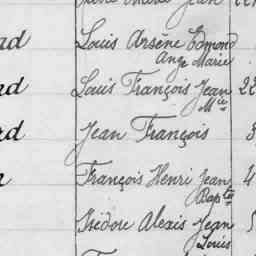 Louis Arsène Edmond
Ange Marie
Louis François Jean 22
Mie
Jean François 3
François Henri Jean 4
Bapte
Isidore Alexis Jean 5
Louis